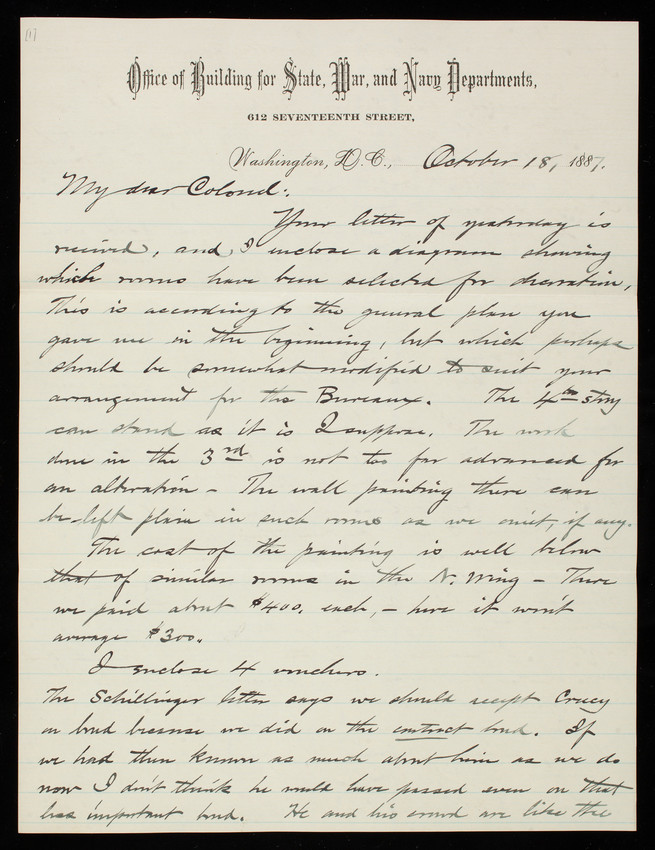 [1]
Office of Building for State, War, and Navy Departments,
612 SEVENTEENTH STREET,
Washington, D.C., October 18, 1887.
My dear Colonel:.
Your letter of yesterday is
received, and I enclose a diagram showing
which rooms have been selected for decoration,
This is according to the general plan you
gave me in the beginning, but which perhaps
should be somewhat modified to suit your
arrangement for the Bureaux. The 4th story
can stand as it is I suppose. The work
done in the 3rd is not too far advanced for
an alteration - The wall painting there can
be left plain in such rooms as we omit, if any.
The cost of the painting is well below
that of similar rooms in the N. Wing - There
we paid about $400. each, - here it won't
average $300.
I enclose 4 vouchers.
The Schillinger letter says we should accept Creecy
on bond because we did on the contract bond. If
we had then known as much about him as we do
now I don't think he would have passed even on that
less important bond. He and his crowd are like the